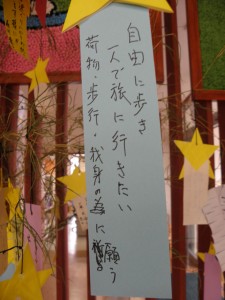 自由に歩き
一人で旅に行きたい
荷物・歩行・我身の為に願う